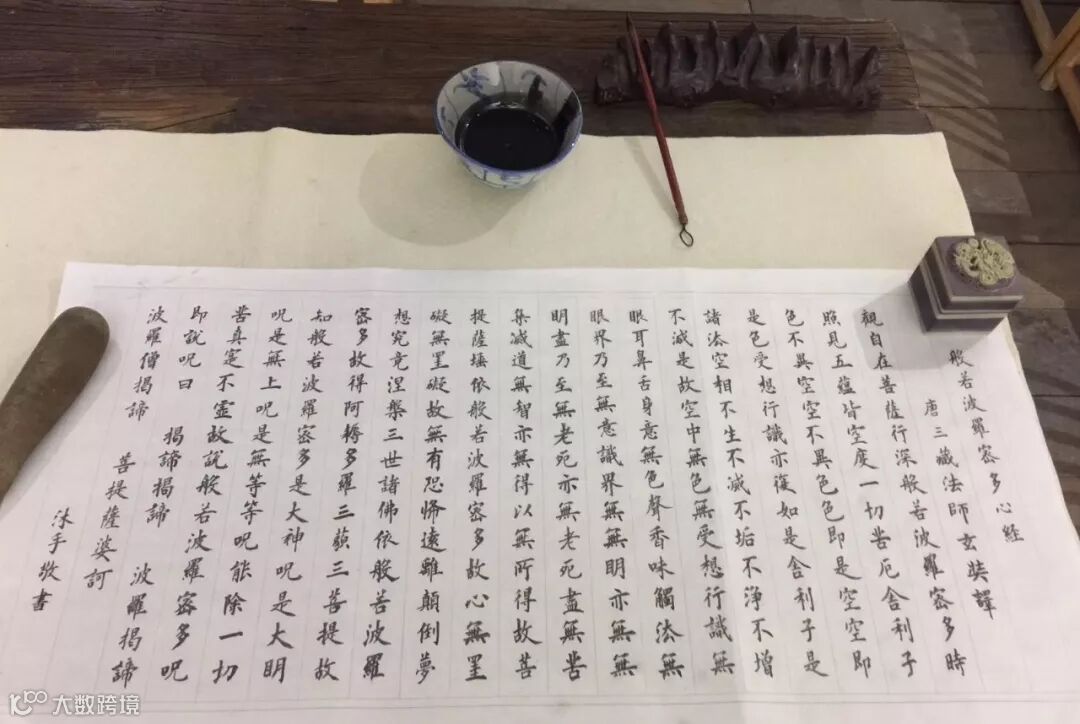 般若波羅密多心経
唐三藏法師玄奘譯
觀自在菩薩行深般若波羅密多時
照見五蘊皆空度一切苦厄舍利子
色不異空空不異色色即是空空即
是色受想行識亦復如是舍利子是
諸法空相不生不滅不垢不淨不增
不減是故空中無色無受想行識無
眼耳鼻舌身意無色聲香味觸法無
眼界乃至無意識界無無明亦無無
明盡乃至無老死亦無老死盡無苦
集滅道無智亦無得以無所得故菩
提薩埵依般若波羅密多故心無罣
礙無罣礙故無有恐怖遠離顛倒夢
想究竟涅槃三世諸佛依般若波羅
密多故得阿耨多羅三藐三菩提故
知般若波羅密多是大神呪是大明
呪是無上呪是無等等呪能除一切
苦真實不虛故說般若波羅密多呪
即說呪曰 揭諦揭諦 波羅揭諦
波羅僧揭諦 菩提薩婆訶
沐手敬書
大数跨境